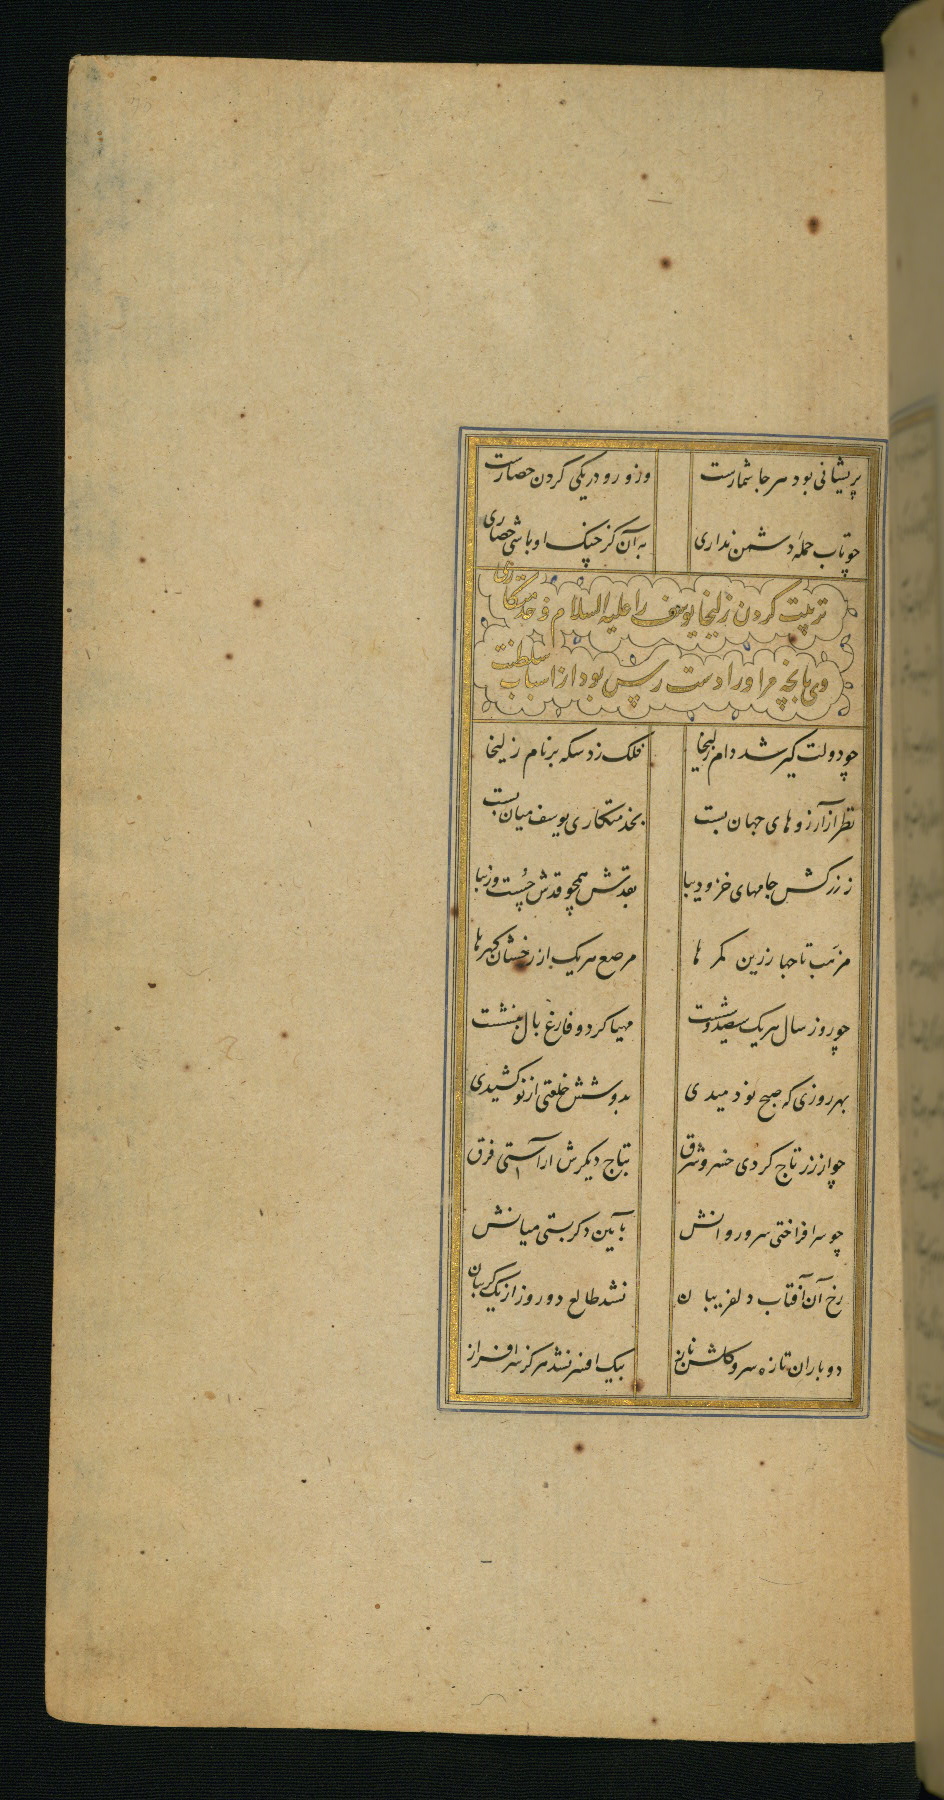 پریشانی بود هر جا شمارست وزو رو در یکی کردن حصارست
چو تاب حمله دشمن نداری به آن کز جنگ او باشی حصاری
تربیت کردن زلیخا یوسف را علیه السلام و خدمتکاری
وی بانچه مر او را دست رس بود از اسباب سلطنت
چو دولت گیر شد دام زلیخا فلک زد سکه بر نام زلیخا
نظر از آرزوهای جهان بست بخدمتکاری یوسف میان بست
ز زرکش جامهای خز و دیبا بقدش همچو قدش چست و زیبا
مرتب تاجها زرین کمرها مرصع هر یک از رخشان گهرها
چو روز سال هر یک سیصد و شست مهیا کرد و فارغ بال بنشست
بهر روزی که صبح نو دمیدی بدوشش خلعتی از نو کشیدی
چو از زر تاج کردی خسرو شرق بتاج دیگرش آراستی فرق
چو سر افراختی سرو روانش بآیین دگر بستی میانش
رخ آن آفتاب دلفریبان نشد طالع دو روز از یک گریبان
دو باران تازه سرو گلشن ناز بیک افسر نشد هرگز سرافراز